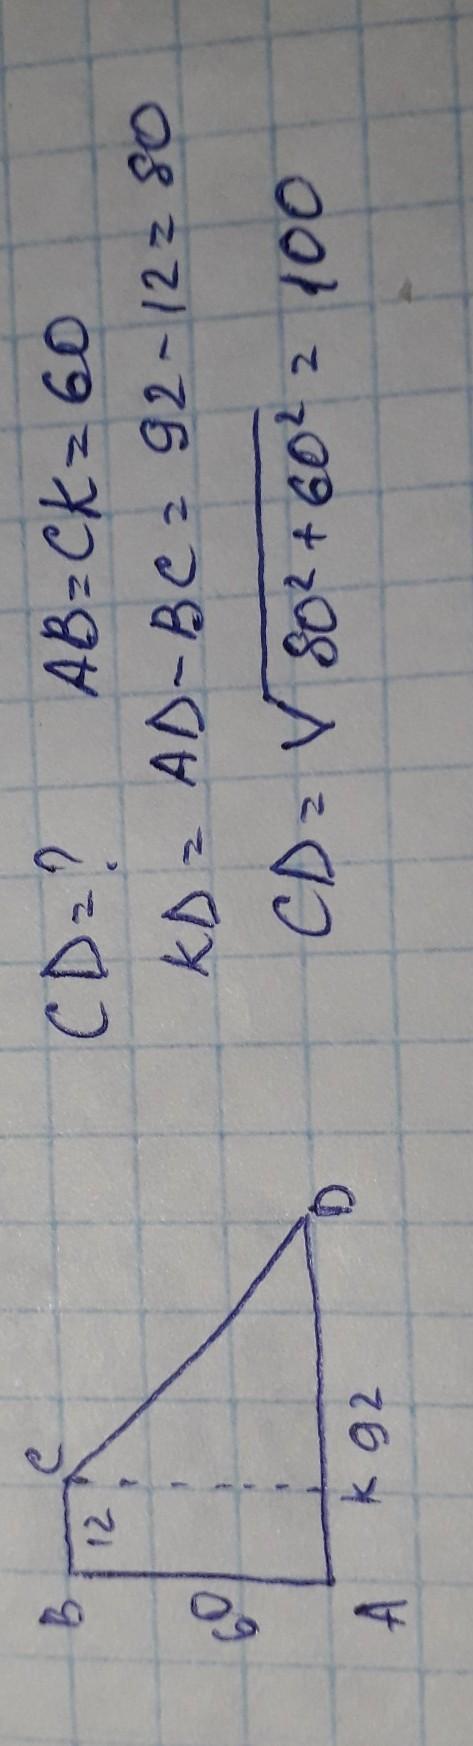 B
C
12
60
A
K
92
D
CD=? AB=CK=60
KD = AD-BC = 92-12=80
CD= √80²+60² = 100